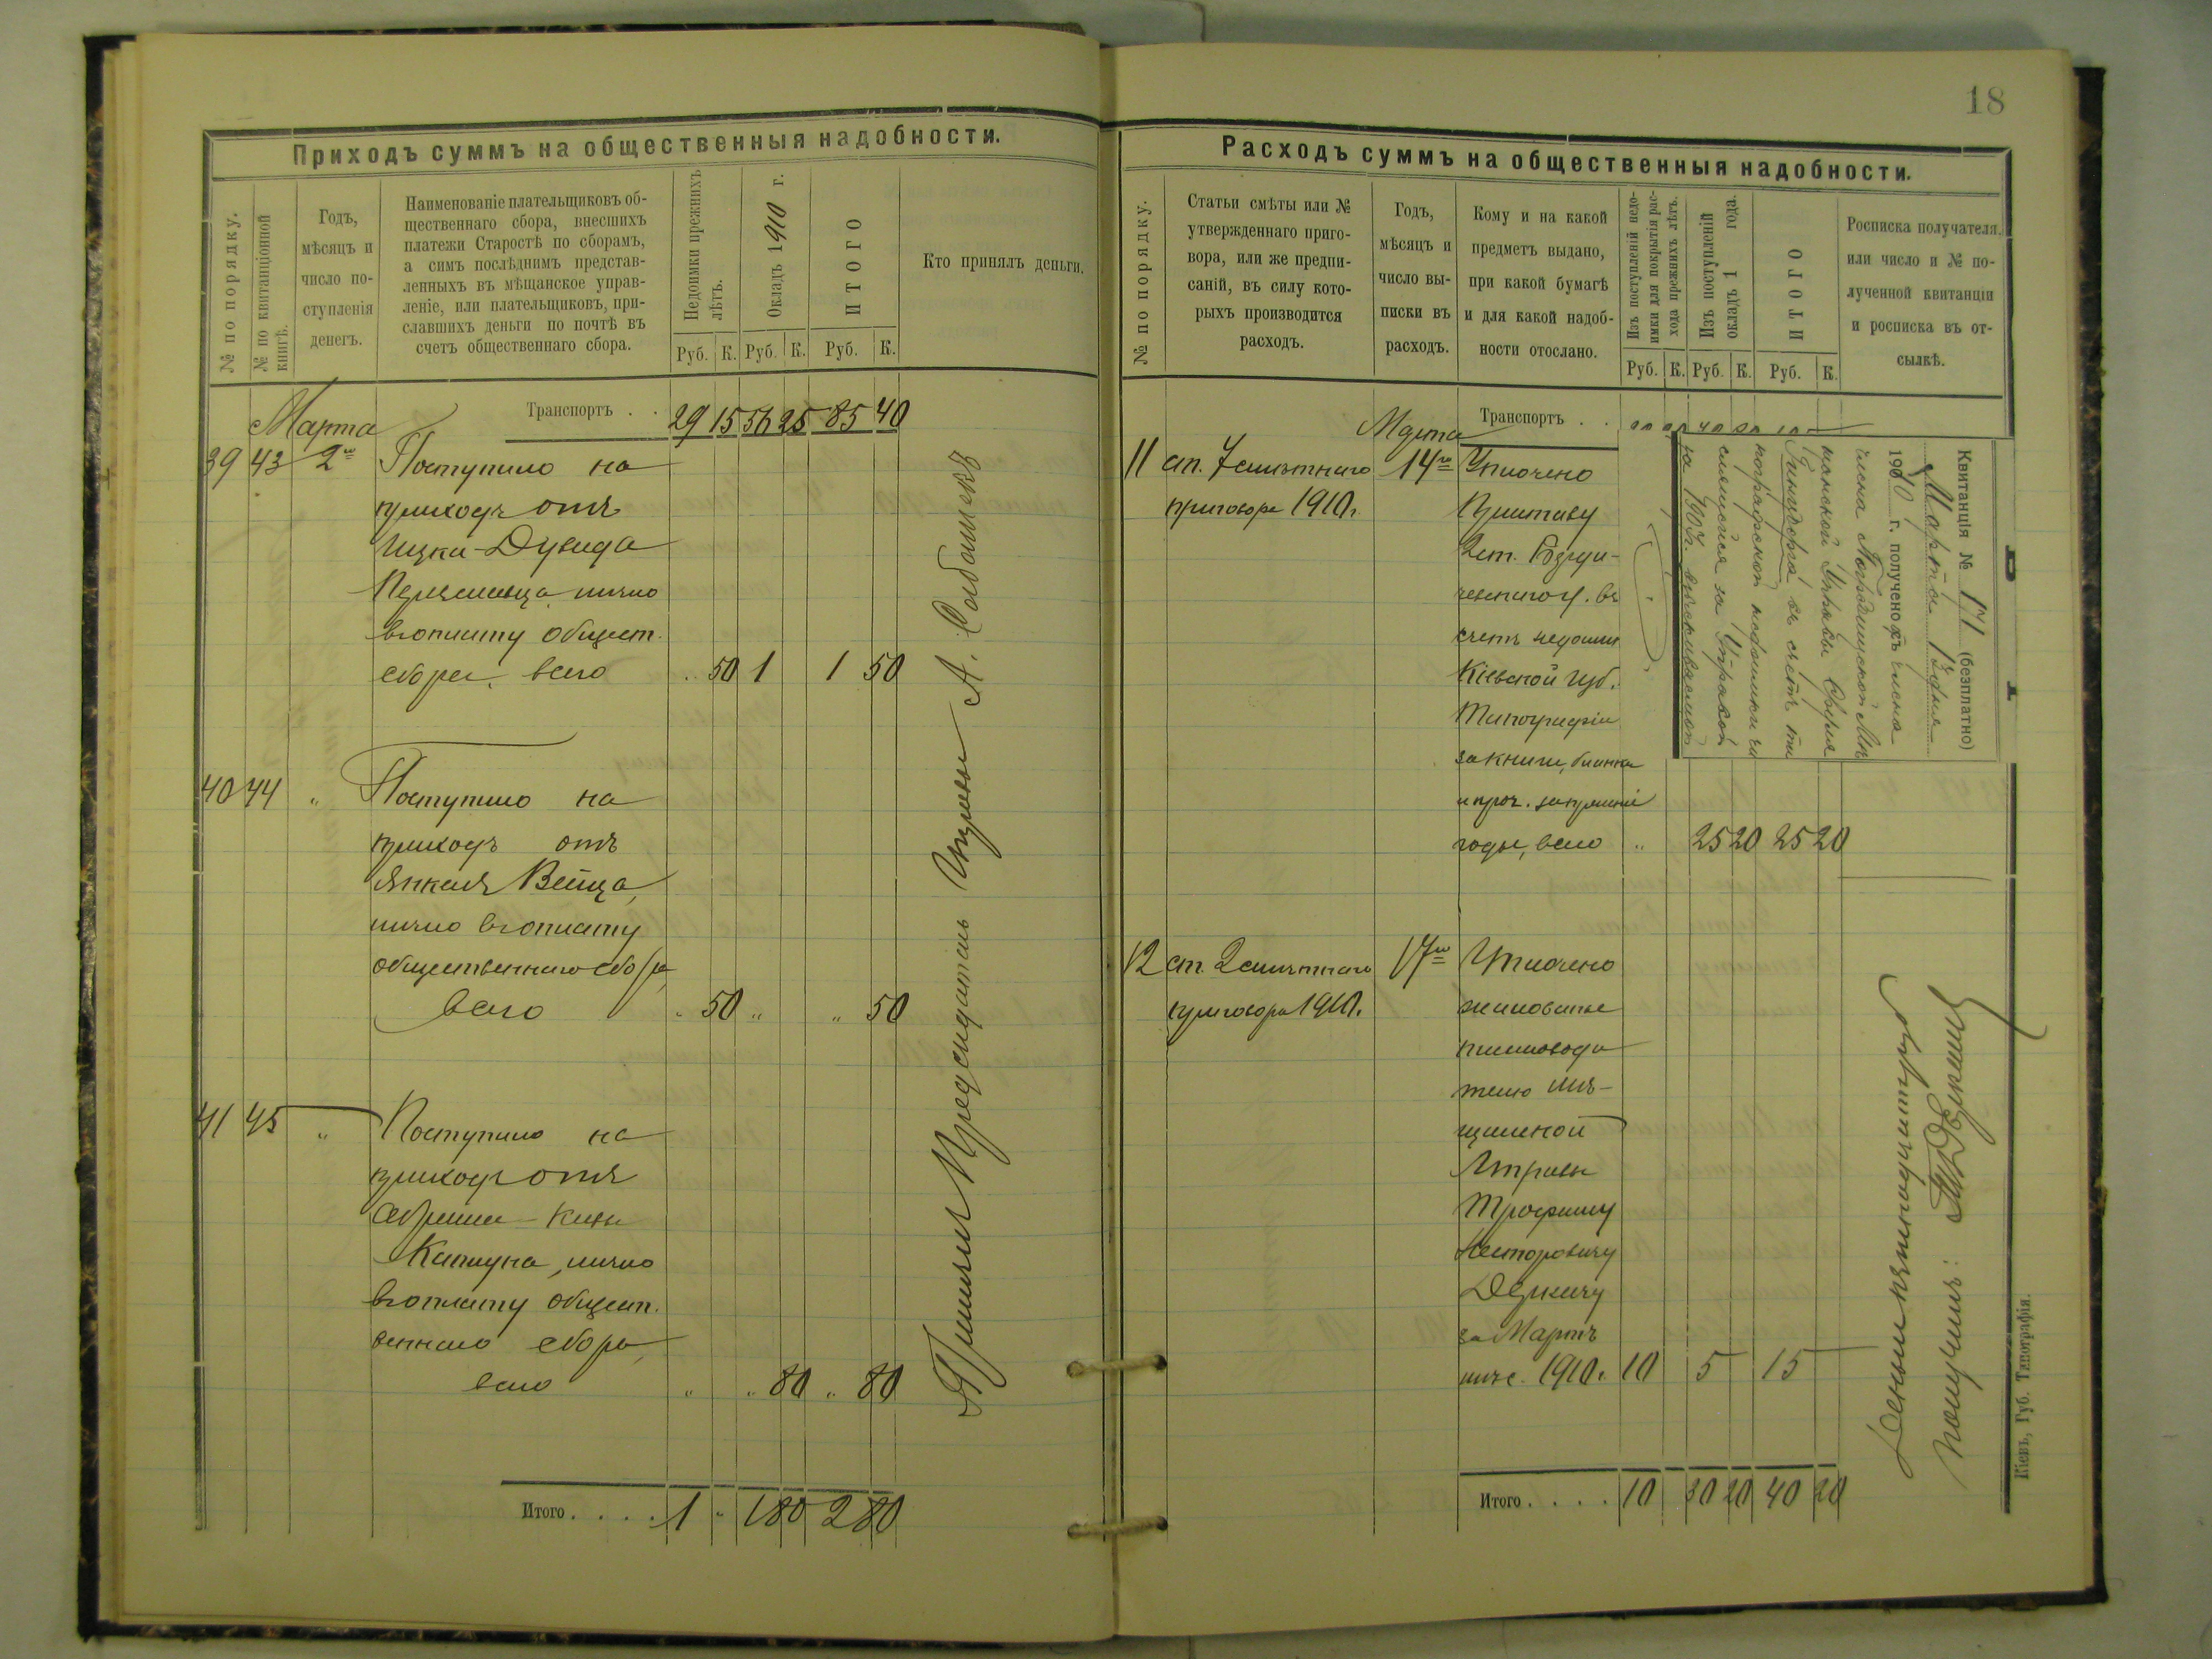 18
Приходъ суммъ на общественныя надобности.
№ по порядку.
№ по квитанціонной
книгѣ.
Годъ,
мѣсяцъ и
число по-
ступленія
денегъ.
Наименованіе плательщиковъ об-
щественнаго сбора, внесшихъ
платежи Старостѣ по сборамъ,
а симъ послѣднимъ представ-
ленныхъ въ мѣщанское управ-
леніе, или плательщиковъ, при-
славшихъ деньги по почтѣ въ
счетъ общественнаго сбора.
Недоимки прежнихъ
лѣтъ.
Окладъ 1910 г.
ИТОГО
Кто принялъ деньги.
Руб. К. Руб. К. Руб. К.
Транспортъ . . 29 15 56 25 85 40
Марта
39 43 2го Поступило на
приходъ отъ
Ицки-Дувида
лично
въ оплату общест.
сбора, всего 50 1 1 50
40 44 " Поступило на
приходъ отъ
Янкеля Вейца,
лично въ оплату
общественнаго сбора,
всего " 50 " " 50
41 45 " Поступило на
приходъ отъ
Каплуна, лично
въ оплату общест.
веннаго сбора,
всего " " 80 " 80
Итого . . . . 1 " 1 80 2 80
Принялъ Предсидатель Управы А.
Расходъ суммъ на общественныя надобности.
№ по порядку.
Статьи смѣты или №
утвержденнаго приго-
вора, или же предпи-
саній, въ силу кото-
рыхъ производится
расходъ.
Годъ,
мѣсяцъ и
число вы-
писки въ
расходъ.
Кому и на какой
предметъ выдано,
при какой бумагѣ
и для какой надоб-
ности отослано.
Изъ поступленій недо-
имки для покрытія рас-
хода прежнихъ лѣтъ.
Изъ поступленій
окладъ 1 года.
ИТОГО
Росписка получателя,
или число и № по-
лученной квитанціи
и росписка въ от-
сылкѣ.
Руб. К. Руб. К. Руб. К.
Транспортъ . .
Марта
11 ст. 7 смѣтнаго 14го Уплочено
приговора 1910г. Приставу
2 ст. Бэрди-
чевскаго у. въ
счетъ недоимки
Кіевской губ.
Типографіи
за книги, бланки
и проч. за прежніе
годы, всего " 25 20 25 20
Квитанція № 171 (безплатно)
Марта 13 дня
1910 г. получено
12 ст. 2 смѣтнаго 17го Уплочено
приговора 1910г. жалованье
письмоводи
телю Мѣ-
щанской
Управы
Трофиму
Несторовичу
Деркачу
за Мартъ
мѣс. 1910г. 10 5 15
Деньги пятнадцать руб.
получилъ: Т. Деркачъ
Итого . . . . 10 30 20 40 20
Кіевъ, Губ. Типографія.